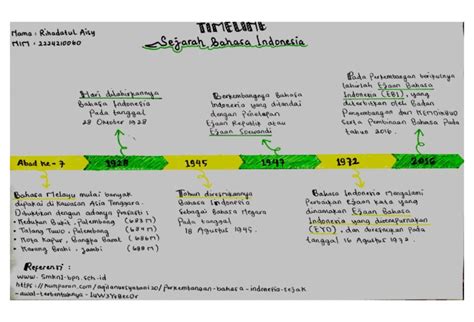 Nama : Rihadatul Aisy
NIM : 2224210060
TIMELINE
Sejarah Bahasa Indonesia
Hari dilahirkannya
Bahasa Indonesia
Pada tanggal
28 Oktober 1928
Berkembangnya Bahasa
Indonesia yang ditandai
dengan Penetapan
Ejaan Republik atau
Ejaan Soewandi
Pada Perkembangan berikutnya
lahirlah Ejaan Bahasa
Indonesia (EBI), yang
diterbitkan oleh Badan
Pengembangan dan KEMDIKBUD
Serta Pembinaan Bahasa Pada
tahun 2016.
Abad ke - 7
1928
1945
1947
1972
2016
Bahasa Melayu mulai banyak
dipakai di Kawasan Asia Tenggara.
Dibuktikan dengan adanya Prasasti :
• Kedukan Bukit, Palembang (683 M)
• Talang Tuwo, Palembang (684 M)
• Kota Kapur, Bangka Barat (686 M)
• Karang Brahi, Jambi (688 M)
Tahun diresmikannya
Bahasa Indonesia
Sebagai Bahasa Negara
Pada tanggal
18 Agustus 1945.
Bahasa Indonesia Mengalami
Perbaikan Ejaan kata yang
dinamakan Ejaan Bahasa
Indonesia yang disempurnakan
(EYD), dan diresmikan pada
tanggal 16 Agustus 1972.
Referensi :
www.Smkn1-bpn.sch.id